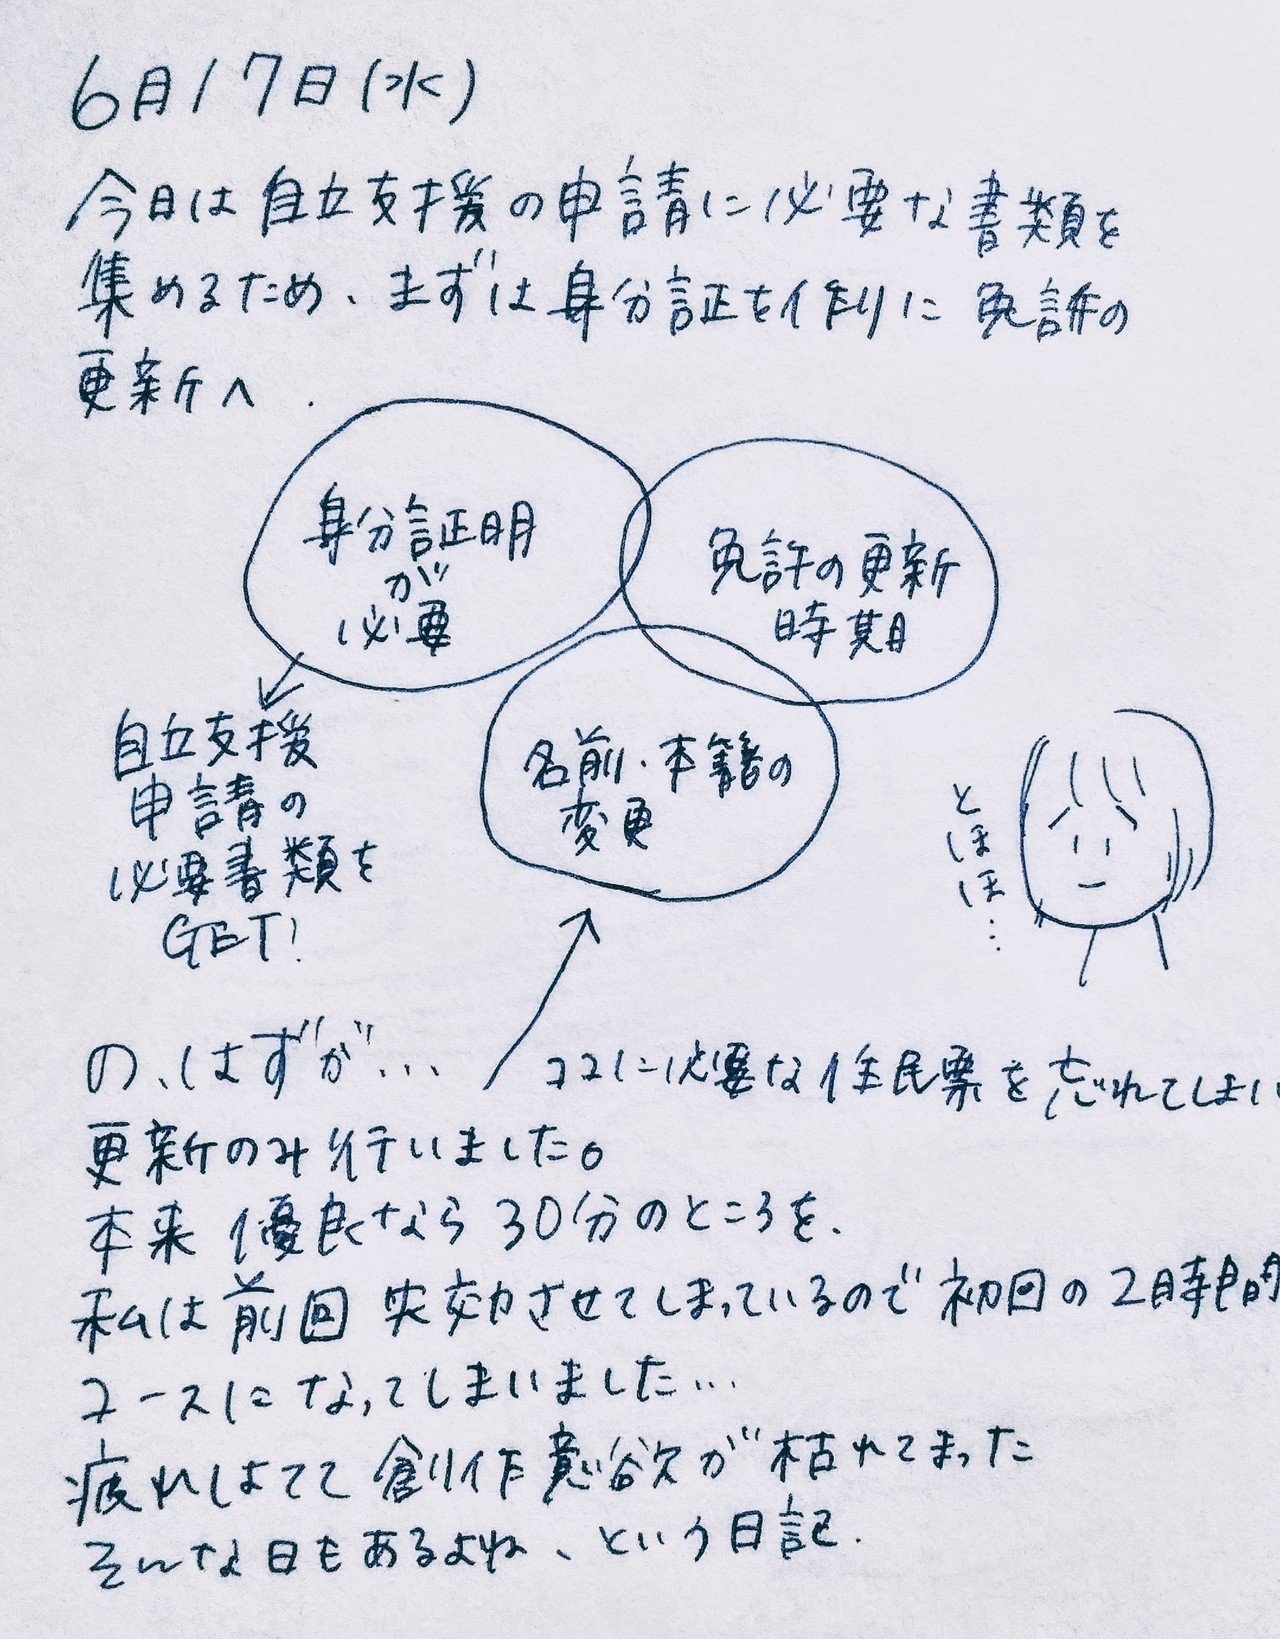 6月17日(水)
今日は自立支援の申請に必要な書類を
集めるため、まずは身分証を作りに免許の
更新へ.
身分証明
が
必要
免許の更新
時期
名前・本籍の
変更
自立支援
申請の
必要書類を
GET!
とほほ…
の、はずが…
ココに必要な住民票を忘れてしまい
更新のみ行いました。
本来優良なら30分のところを、
私は前回失効させてしまっているので初回の2時間
コースになってしまいました…
疲れはてて創作意欲が枯れてまった
そんな日もあるよね、という日記.